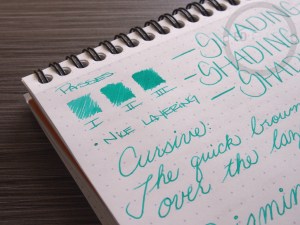 PASSES
I II III
• NICE LAYERING
SHADING
SHADING
SHAD
Cursive:
The quick brown
over the laz